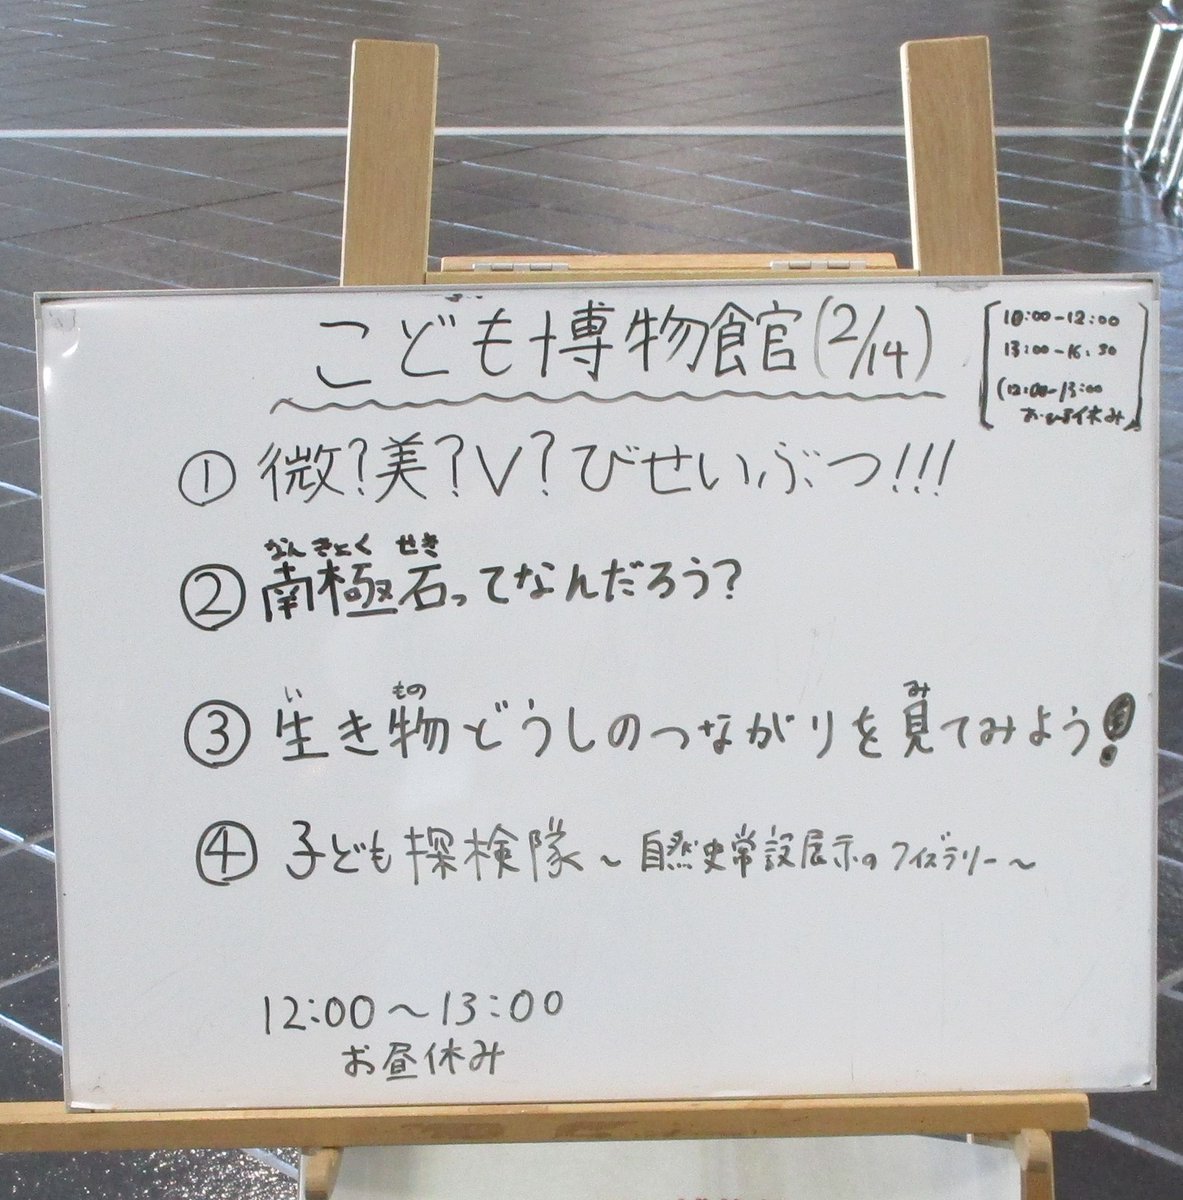 こども博物館(2/14)
10:00-12:00
13:00-16:30
(12:00-13:00
おひる休み)
① 微?美?V?びせいぶつ!!!
なんきょくせき
② 南極石ってなんだろう?
い もの み
③ 生き物どうしのつながりを見てみよう!
④ 子ども探検隊～自然史常設展示のクイズラリー～
12:00～13:00
お昼休み